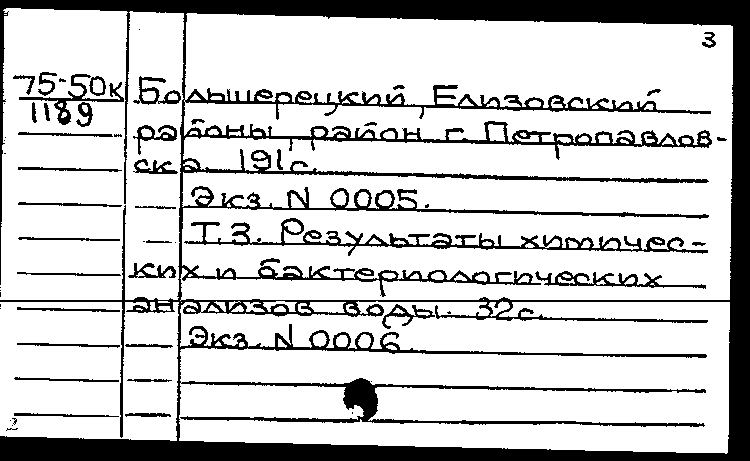 3
75-50к Большерецкий, Елизовский
1189
районы, район г. Петропавлов-
ска. 191с.
Экз. N 0005.
Т.3. Результаты химичес-
ких и бактериологических
анализов воды. 32с.
Экз. N 0006.
2